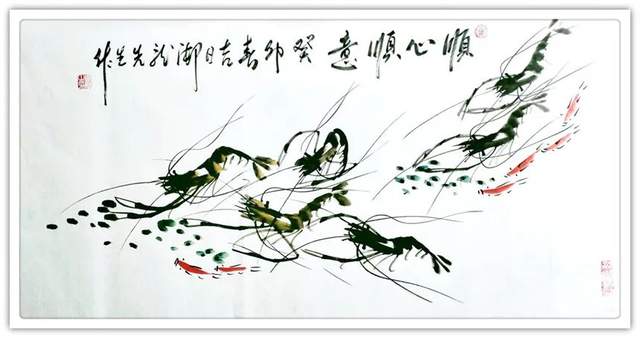 順心順意 癸卯春吉日 龙先生作